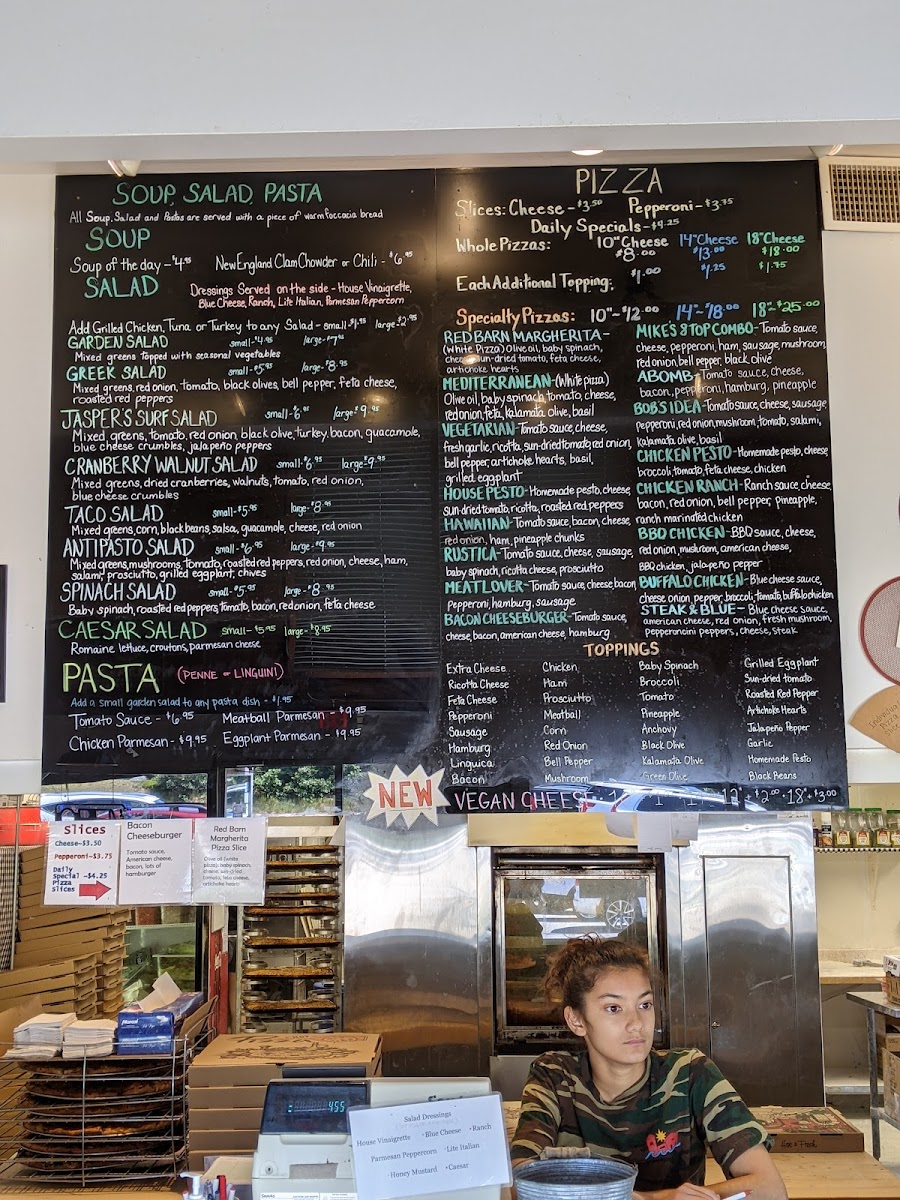 SOUP, SALAD, PASTA
All Soup, Salad and Pastas are served with a piece of warm foccacia bread
SOUP
Soup of the day - $4.95 New England Clam Chowder or Chili - $6.95
SALAD
Dressings Served on the side - House Vinaigrette,
Blue Cheese, Ranch, Lite Italian, Parmesan Peppercorn
Add Grilled Chicken, Tuna or Turkey to any Salad - small $1.95 large $2.95
GARDEN SALAD small - $4.95 large - $7.95
Mixed greens topped with seasonal vegetables
GREEK SALAD small - $5.95 large - $8.95
Mixed greens, red onion, tomato, black olives, bell pepper, feta cheese,
roasted red peppers
JASPER'S SURF SALAD small - $6.95 large $9.95
Mixed, greens, tomato, red onion, black olive, turkey, bacon, guacamole,
blue cheese crumbles, jalapeño peppers
CRANBERRY WALNUT SALAD small - $6.95 large $9.95
Mixed greens, dried cranberries, walnuts, tomato, red onion,
blue cheese crumbles
TACO SALAD small - $5.95 large - $8.95
Mixed greens, corn, black beans, salsa, guacamole, cheese, red onion
ANTIPASTO SALAD small - $6.95 large - $9.95
Mixed greens, mushrooms, tomato, roasted red peppers, red onion, cheese, ham,
salami, prosciutto, grilled eggplant, chives
SPINACH SALAD small - $5.95 large - $8.95
Baby spinach, roasted red peppers, tomato, bacon, red onion, feta cheese
CAESAR SALAD small - $5.95 large - $8.95
Romaine lettuce, croutons, parmesan cheese
PASTA (PENNE or LINGUINI)
Add a small garden salad to any pasta dish - $1.95
Tomato Sauce - $6.95 Meatball Parmesan - $9.95
Chicken Parmesan - $9.95 Eggplant Parmesan - $9.95
PIZZA
Slices: Cheese - $3.50 Pepperoni - $3.75
Daily Specials - $4.25
Whole Pizzas: 10" Cheese 14" Cheese 18" Cheese
$8.00 $13.00 $18.00
Each Additional Topping: $1.00 $1.25 $1.75
Specialty Pizzas: 10" - $12.00 14" - $18.00 18" - $25.00
RED BARN MARGHERITA -
(White Pizza) Olive oil, baby spinach,
cheese, sun-dried tomato, feta cheese,
artichoke hearts
MEDITERRANEAN - (White pizza)
Olive oil, baby spinach, tomato, cheese,
red onion, feta, kalamata olive, basil
VEGETARIAN - Tomato sauce, cheese,
fresh garlic, ricotta, sun-dried tomato, red onion,
bell pepper, artichoke hearts, basil,
grilled eggplant
HOUSE PESTO - Homemade pesto, cheese,
sun-dried tomato, ricotta, roasted red peppers
HAWAIIAN - Tomato sauce, bacon, cheese,
red onion, ham, pineapple chunks
RUSTICA - Tomato sauce, cheese, sausage,
baby spinach, ricotta cheese, prosciutto
MEATLOVER - Tomato sauce, cheese, bacon
Pepperoni, hamburg, sausage
BACON CHEESEBURGER - Tomato sauce,
cheese, bacon, american cheese, hamburg
MIKE'S 8 TOP COMBO - Tomato sauce,
cheese, pepperoni, ham, sausage, mushroom,
red onion, bell pepper, black olive
ABOMB - Tomato sauce, cheese,
bacon, pepperoni, hamburg, pineapple
BOB'S IDEA - Tomato sauce, cheese, sausage
pepperoni, red onion, mushroom, tomato, salami,
kalamata olive, basil
CHICKEN PESTO - Homemade pesto, cheese,
broccoli, tomato, feta cheese, chicken
CHICKEN RANCH - Ranch sauce, cheese,
bacon, red onion, bell pepper, pineapple,
ranch marinated chicken
BBQ CHICKEN - BBQ sauce, cheese,
red onion, mushroom, american cheese,
BBQ chicken, jalapeño pepper
BUFFALO CHICKEN - Blue cheese sauce,
cheese, onion, pepper, broccoli, tomato, buffalo chicken
STEAK & BLUE - Blue cheese sauce,
american cheese, red onion, fresh mushroom,
pepperoncini peppers, cheese, steak
TOPPINGS
Extra Cheese Chicken Baby Spinach Grilled Eggplant
Ricotta Cheese Ham Broccoli Sun-dried tomato
Feta Cheese Prosciutto Tomato Roasted Red Pepper
Pepperoni Meatball Pineapple Artichoke Hearts
Sausage Corn Anchovy Jalapeño Pepper
Hamburg Red Onion Black Olive Garlic
Linguica Bell Pepper Kalamata Olive Homemade Pesto
Bacon Mushroom Green Olive Black Beans
NEW VEGAN CHEESE $2.00 18" $3.00
Slices
Cheese-$3.50
Pepperoni-$3.75
Daily
Special -$4.25
Pizza
Slices
Bacon
Cheeseburger
Tomato sauce,
American cheese,
bacon, lots of
hamburger
Red Barn
Margherita
Pizza Slice
Olive oil (white
pizza), baby spinach,
cheese, sun-dried
tomato, feta cheese,
artichoke hearts
Individual
Pizza
455
Salad Dressings
House Vinaigrette •Blue Cheese •Ranch
Parmesan Peppercorn •Lite Italian
•Honey Mustard •Caesar
Hot & Fresh